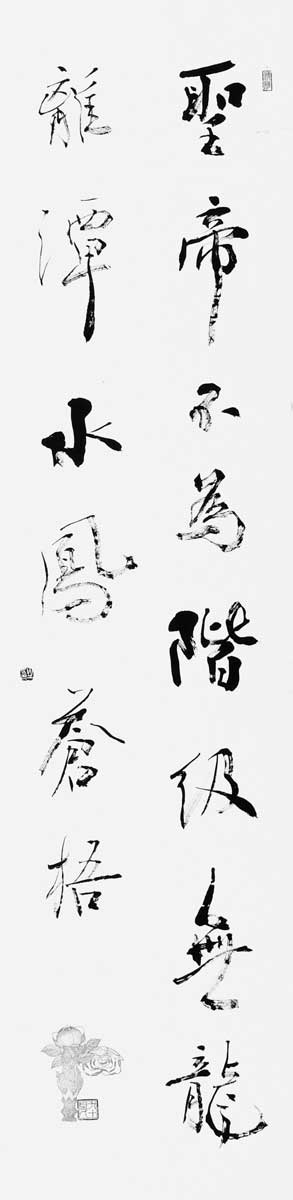 聖帝不為階級無龍
離潭水鳳蒼梧